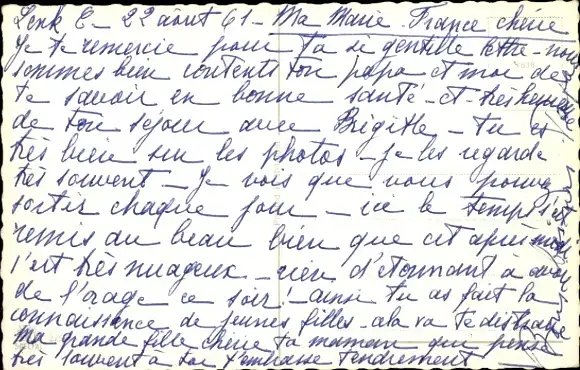 Lenk E - 22 août 61 - Ma Marie-France chérie
Je te remercie pour ta si gentille lettre - nous
sommes bien contents ton papa et moi de
te savoir en bonne santé - et très heureuse
de ton séjour avec Brigitte - tu es
très bien sur les photos - je les regarde
très souvent - Je vois que vous pouvez
sortir chaque jour - ici le temps s'est
remis au beau bien que cet après midi
c'est très nuageux - rien d'étonnant à avoir
de l'orage ce soir ! - ainsi tu as fait la
connaissance de jeunes filles - cela va te distraire
Ma grande fille chérie ta maman qui pense
très souvent à toi t'embrasse tendrement